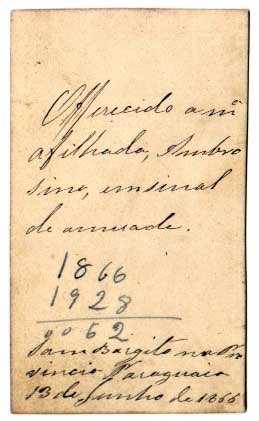 Offerecido a mª
afilhada, Ambro
sina, em sinal
de amisade.
1866
1928
0062
Sam Borgito na Pro
vincia Paraguaia
13 de Junho de 1866